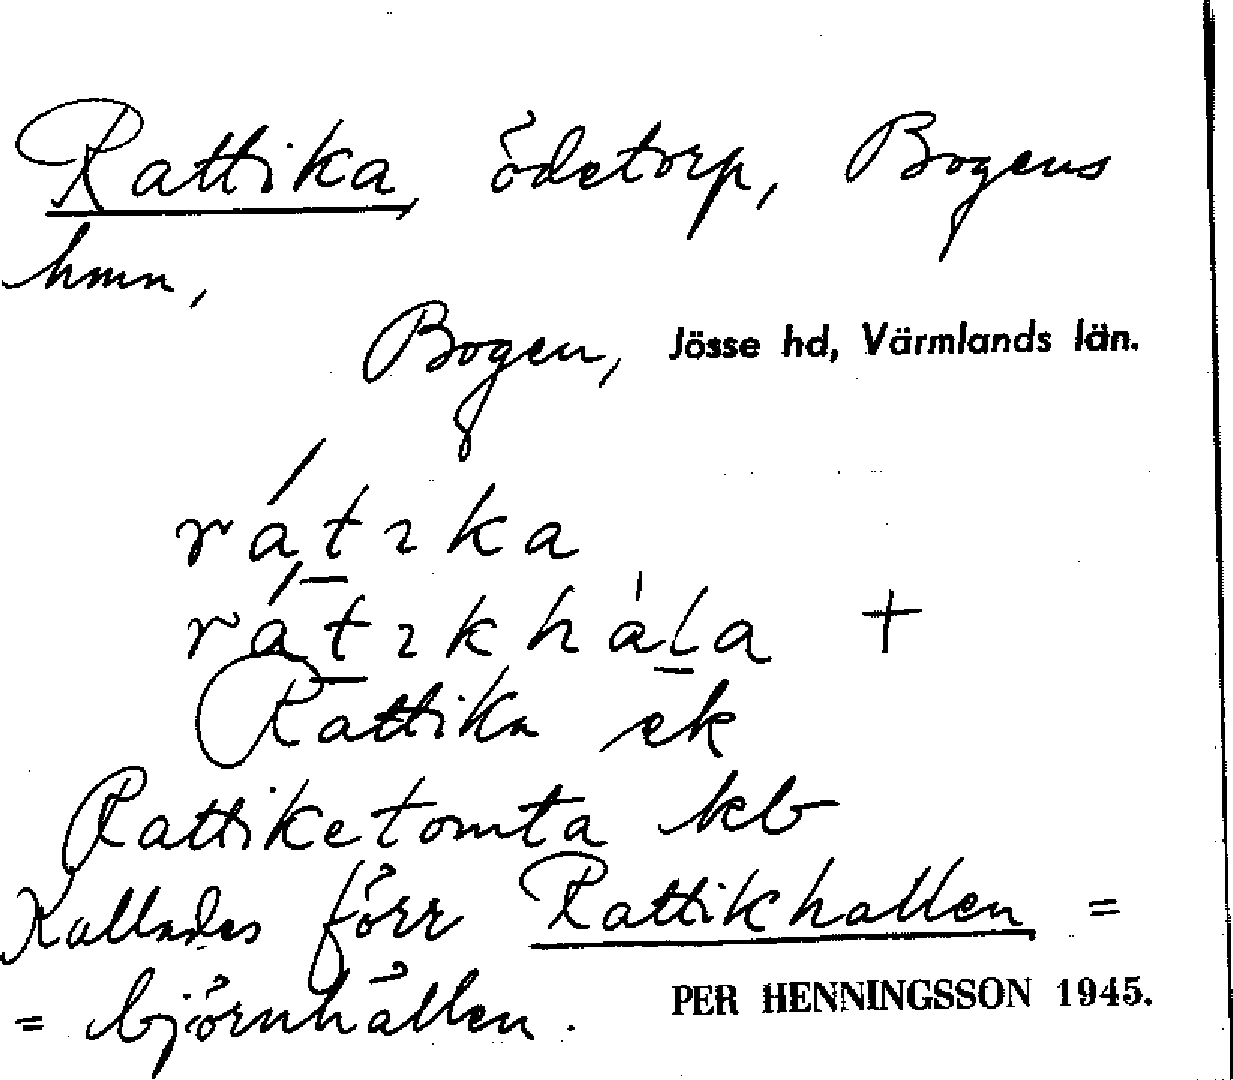 Rattika, ödetorp, Bogens
hmn,
Bogen, Jösse hd, Värmlands län.
rátıka
rátıkhála +
Rattika ek
Rattiketomta kb
Kallades förr Rattikhallen =
= björnhållen.
PER HENNINGSSON 1945.